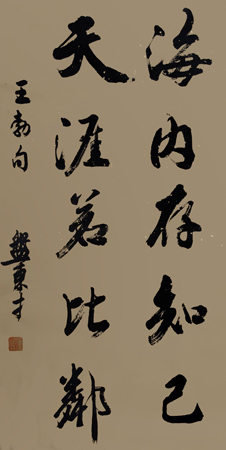 海内存知己
天涯若比鄰
王勃句
盤東才